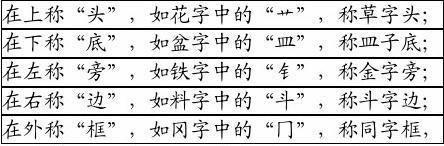 在上称“头”，如花字中的“艹”，称草字头；
在下称“底”，如盆字中的“皿”，称皿子底；
在左称“旁”，如铁字中的“钅”，称金字旁；
在右称“边”，如料字中的“斗”，称斗字边；
在外称“框”，如冈字中的“冂”，称同字框，